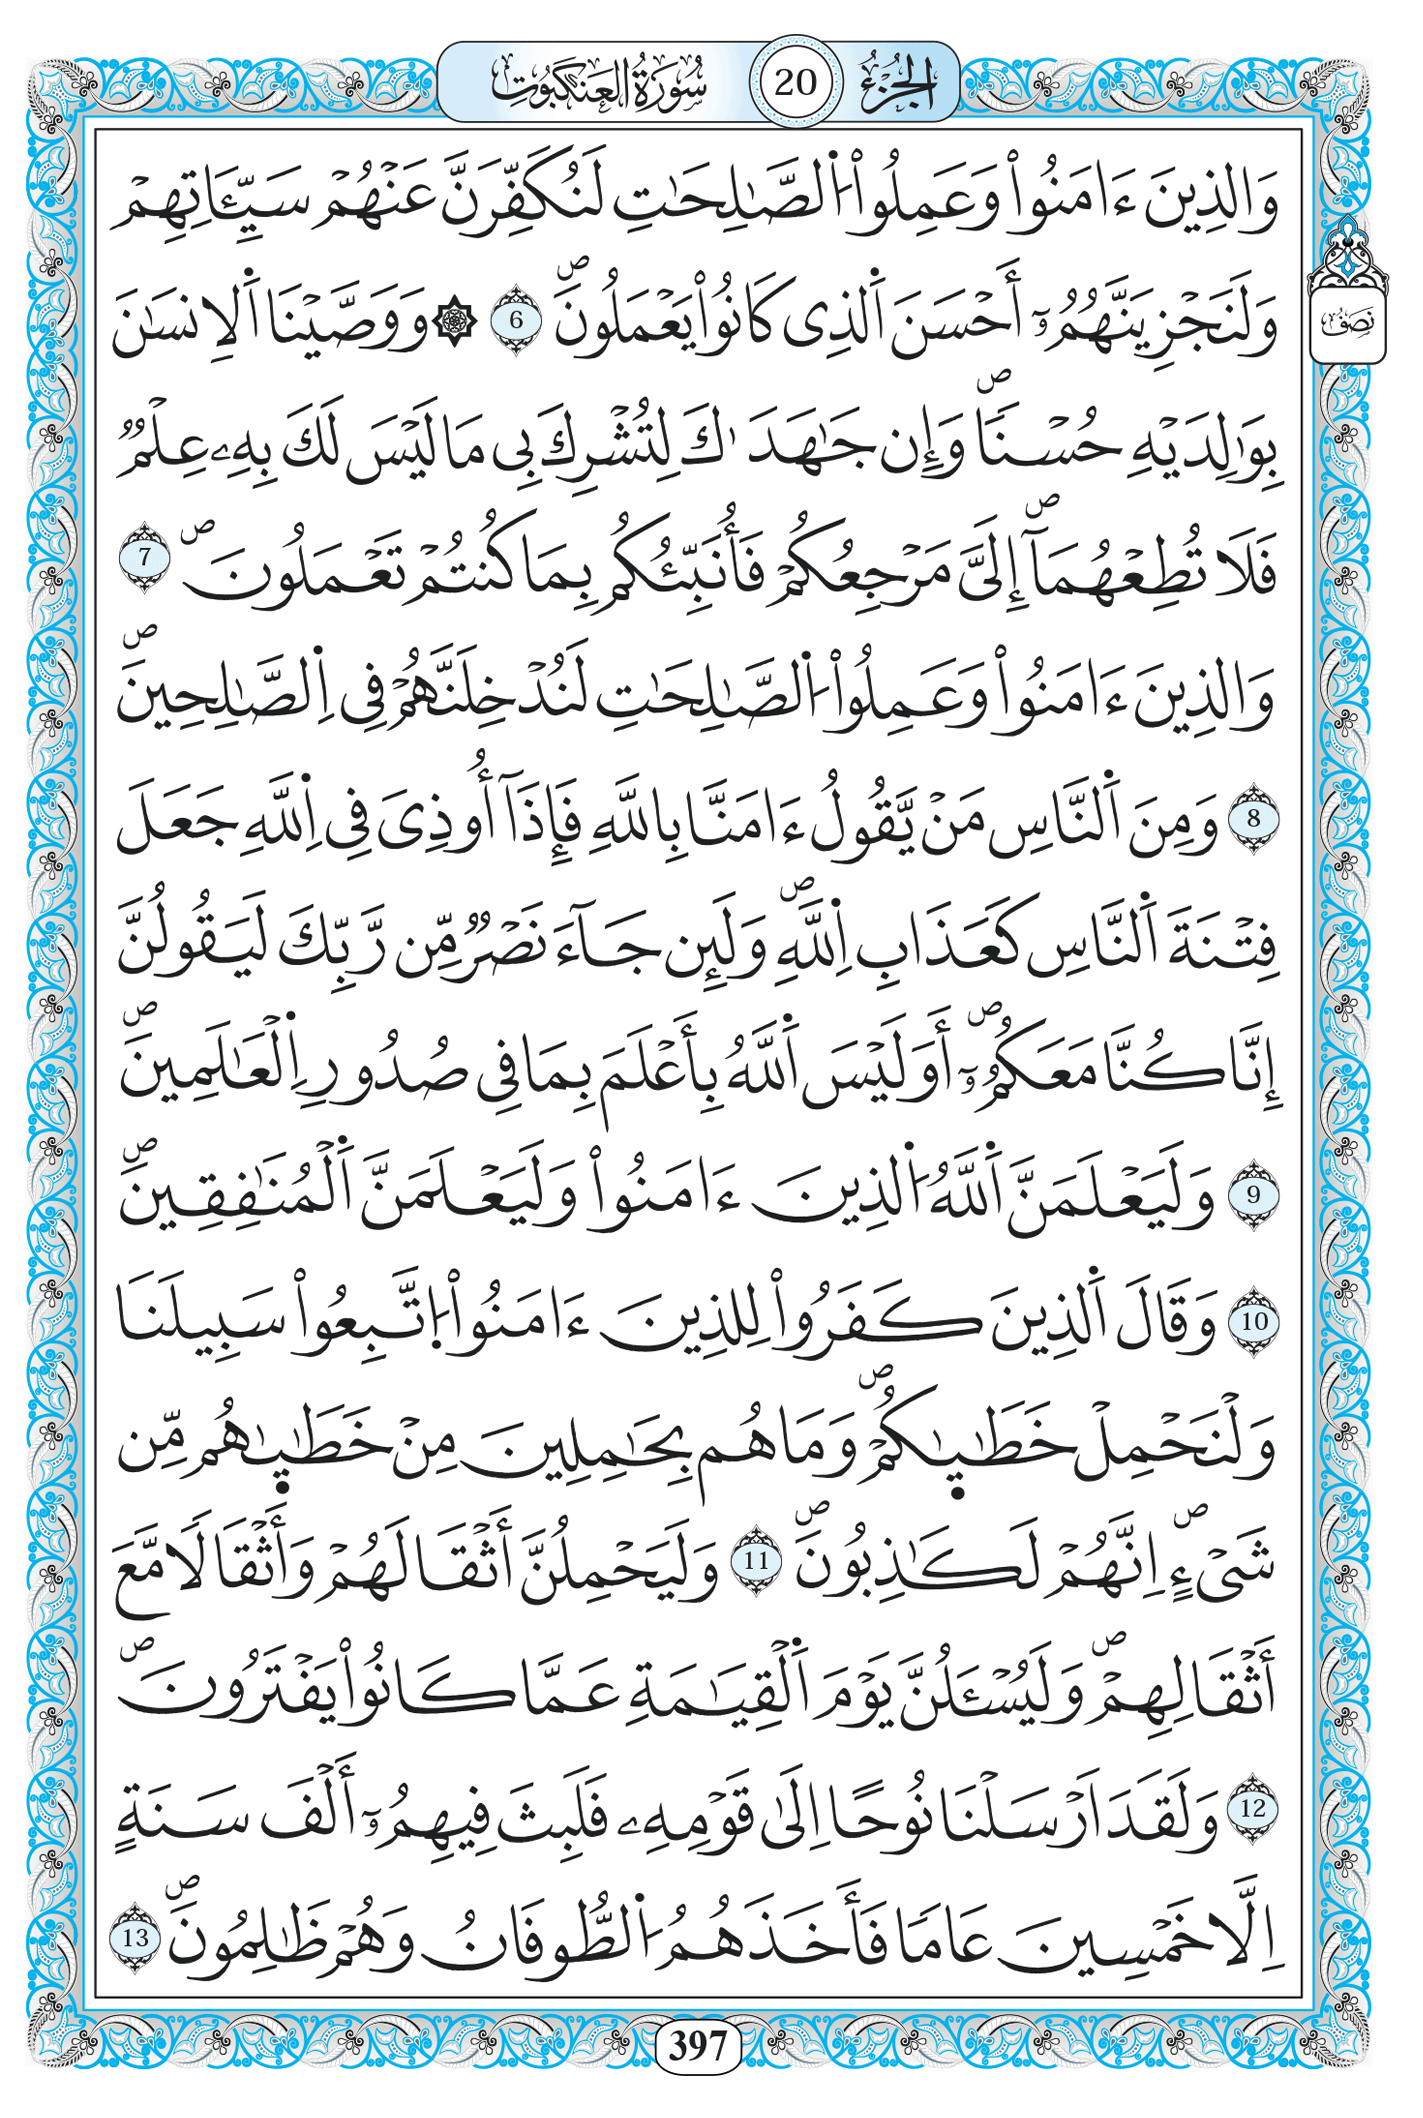 الجزء 20 سورة العنكبوت
وَالذِينَ ءَامَنُواْ وَعَمِلُواْ اُ۬لصَّٰلِحَٰتِ لَنُكَفِّرَنَّ عَنْهُمْ سَيِّـَٔاتِهِمْ
وَلَنَجْزِيَنَّهُمُۥٓ أَحْسَنَ اَ۬لذِى كَانُواْ يَعْمَلُونَۖ 6 ۞ وَوَصَّيْنَا اَ۬لِانسَٰنَ
نصف
بِوَٰلِدَيْهِ حُسْناٗۖ وَإِن جَٰهَدَٰكَ لِتُشْرِكَ بِى مَا لَيْسَ لَكَ بِهِۦ عِلْمٞ
فَلَا تُطِعْهُمَآۖ إِلَىَّ مَرْجِعُكُمْ فَأُنَبِّئُكُم بِمَا كُنتُمْ تَعْمَلُونَۖ 7
وَالذِينَ ءَامَنُواْ وَعَمِلُواْ اُ۬لصَّٰلِحَٰتِ لَنُدْخِلَنَّهُمْ فِى اِ۬لصَّٰلِحِينَۖ
8 وَمِنَ اَ۬لنَّاسِ مَنْ يَّقُولُ ءَامَنَّا بِاللَّهِ فَإِذَآ أُوذِىَ فِى اِ۬للَّهِ جَعَلَ
فِتْنَةَ اَ۬لنَّاسِ كَعَذَابِ اِ۬للَّهِۖ وَلَئِن جَآءَ نَصْرٞ مِّن رَّبِّكَ لَيَقُولُنَّ
إِنَّا كُنَّا مَعَكُمُۥٓۖ أَوَلَيْسَ اَ۬للَّهُ بِأَعْلَمَ بِمَا فِى صُدُورِ اِ۬لْعَٰلَمِينَۖ
9 وَلَيَعْلَمَنَّ اَ۬للَّهُ اُ۬لذِينَ ءَامَنُواْ وَلَيَعْلَمَنَّ اَ۬لْمُنَٰفِقِينَۖ
10 وَقَالَ اَ۬لذِينَ كَفَرُواْ لِلذِينَ ءَامَنُواْ اُ۪تَّبِعُواْ سَبِيلَنَا
وَلْنَحْمِلْ خَطَٰيَٰكُمْۖ وَمَا هُم بِحَٰمِلِينَ مِنْ خَطَٰيَٰهُم مِّن
شَىْءٍۖ اِنَّهُمْ لَكَٰذِبُونَۖ 11 وَلَيَحْمِلُنَّ أَثْقَالَهُمْ وَأَثْقَالاٗ مَّعَ
أَثْقَالِهِمْۖ وَلَيُسْـَٔلُنَّ يَوْمَ اَ۬لْقِيَٰمَةِ عَمَّا كَانُواْ يَفْتَرُونَۖ
12 وَلَقَدَ اَرْسَلْنَا نُوحاً اِلَىٰ قَوْمِهِۦ فَلَبِثَ فِيهِمُۥٓ أَلْفَ سَنَةٍ
اِلَّا خَمْسِينَ عَاماٗ فَأَخَذَهُمُ اُ۬لطُّوفَانُ وَهُمْ ظَٰلِمُونَۖ 13
397